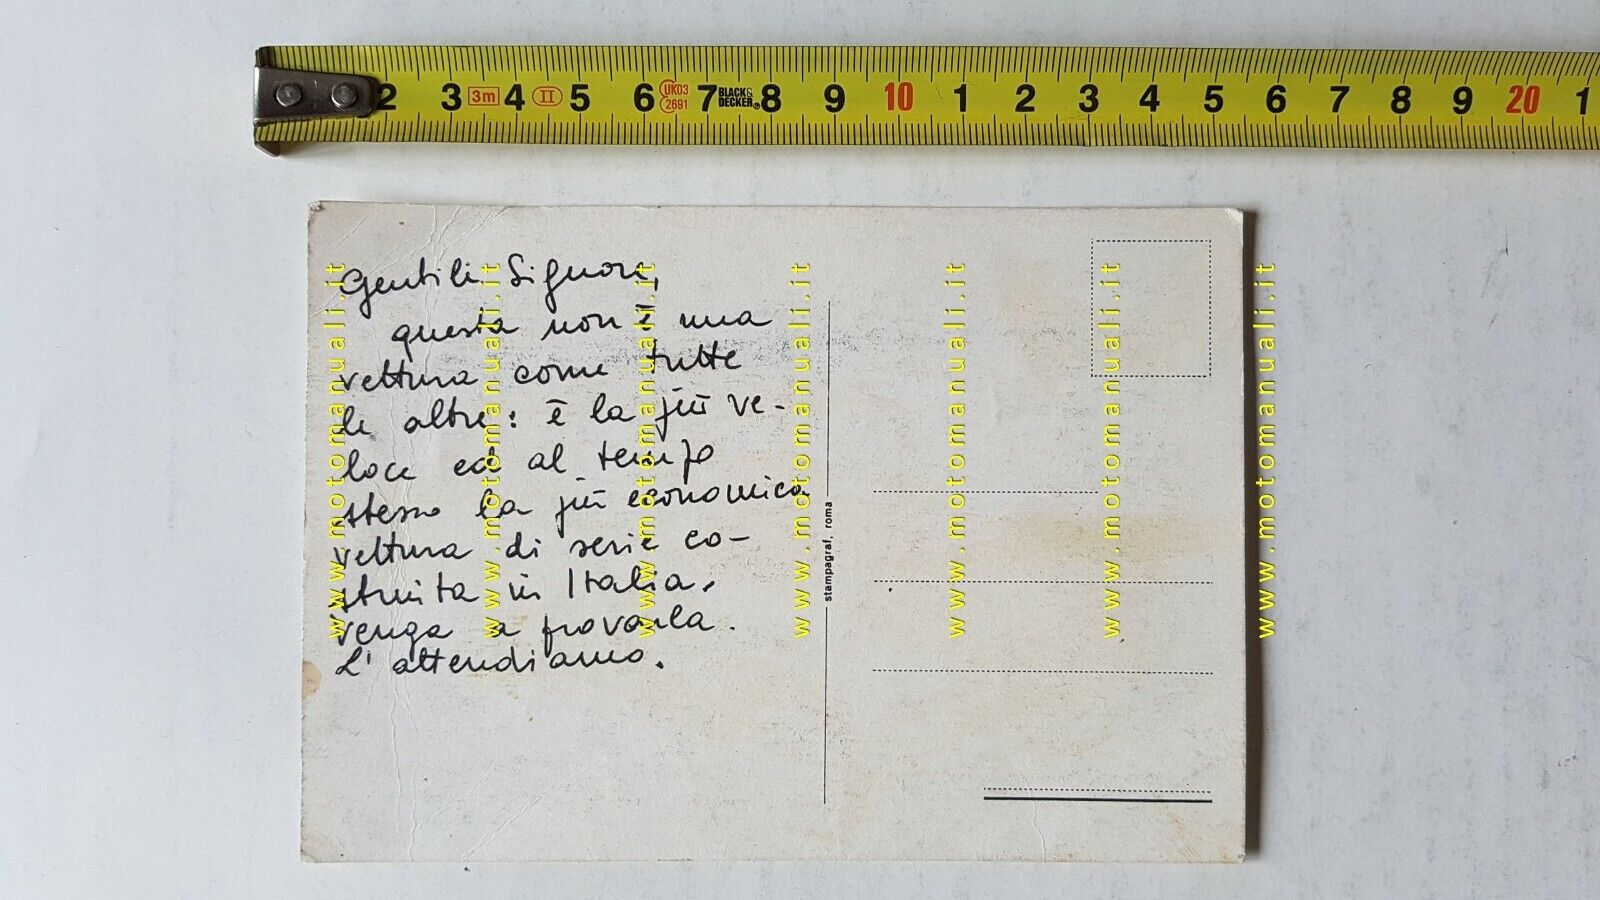 2 3 3m 4 II 5 6 UK03 2691 7 BLACK& DECKER® 8 9 10 1 2 3 4 5 6 7 8 9 20 1
Gentili Signori,
questa non è una
vettura come tutte
le altre: è la più ve-
loce ed al tempo
stesso la più economica
vettura di serie co-
struita in Italia.
Venga a provarla.
L'attendiamo.
stampagraf, roma
www.motomanuali.it
www.motomanuali.it
www.motomanuali.it
www.motomanuali.it
www.motomanuali.it
www.motomanuali.it
www.motomanuali.it